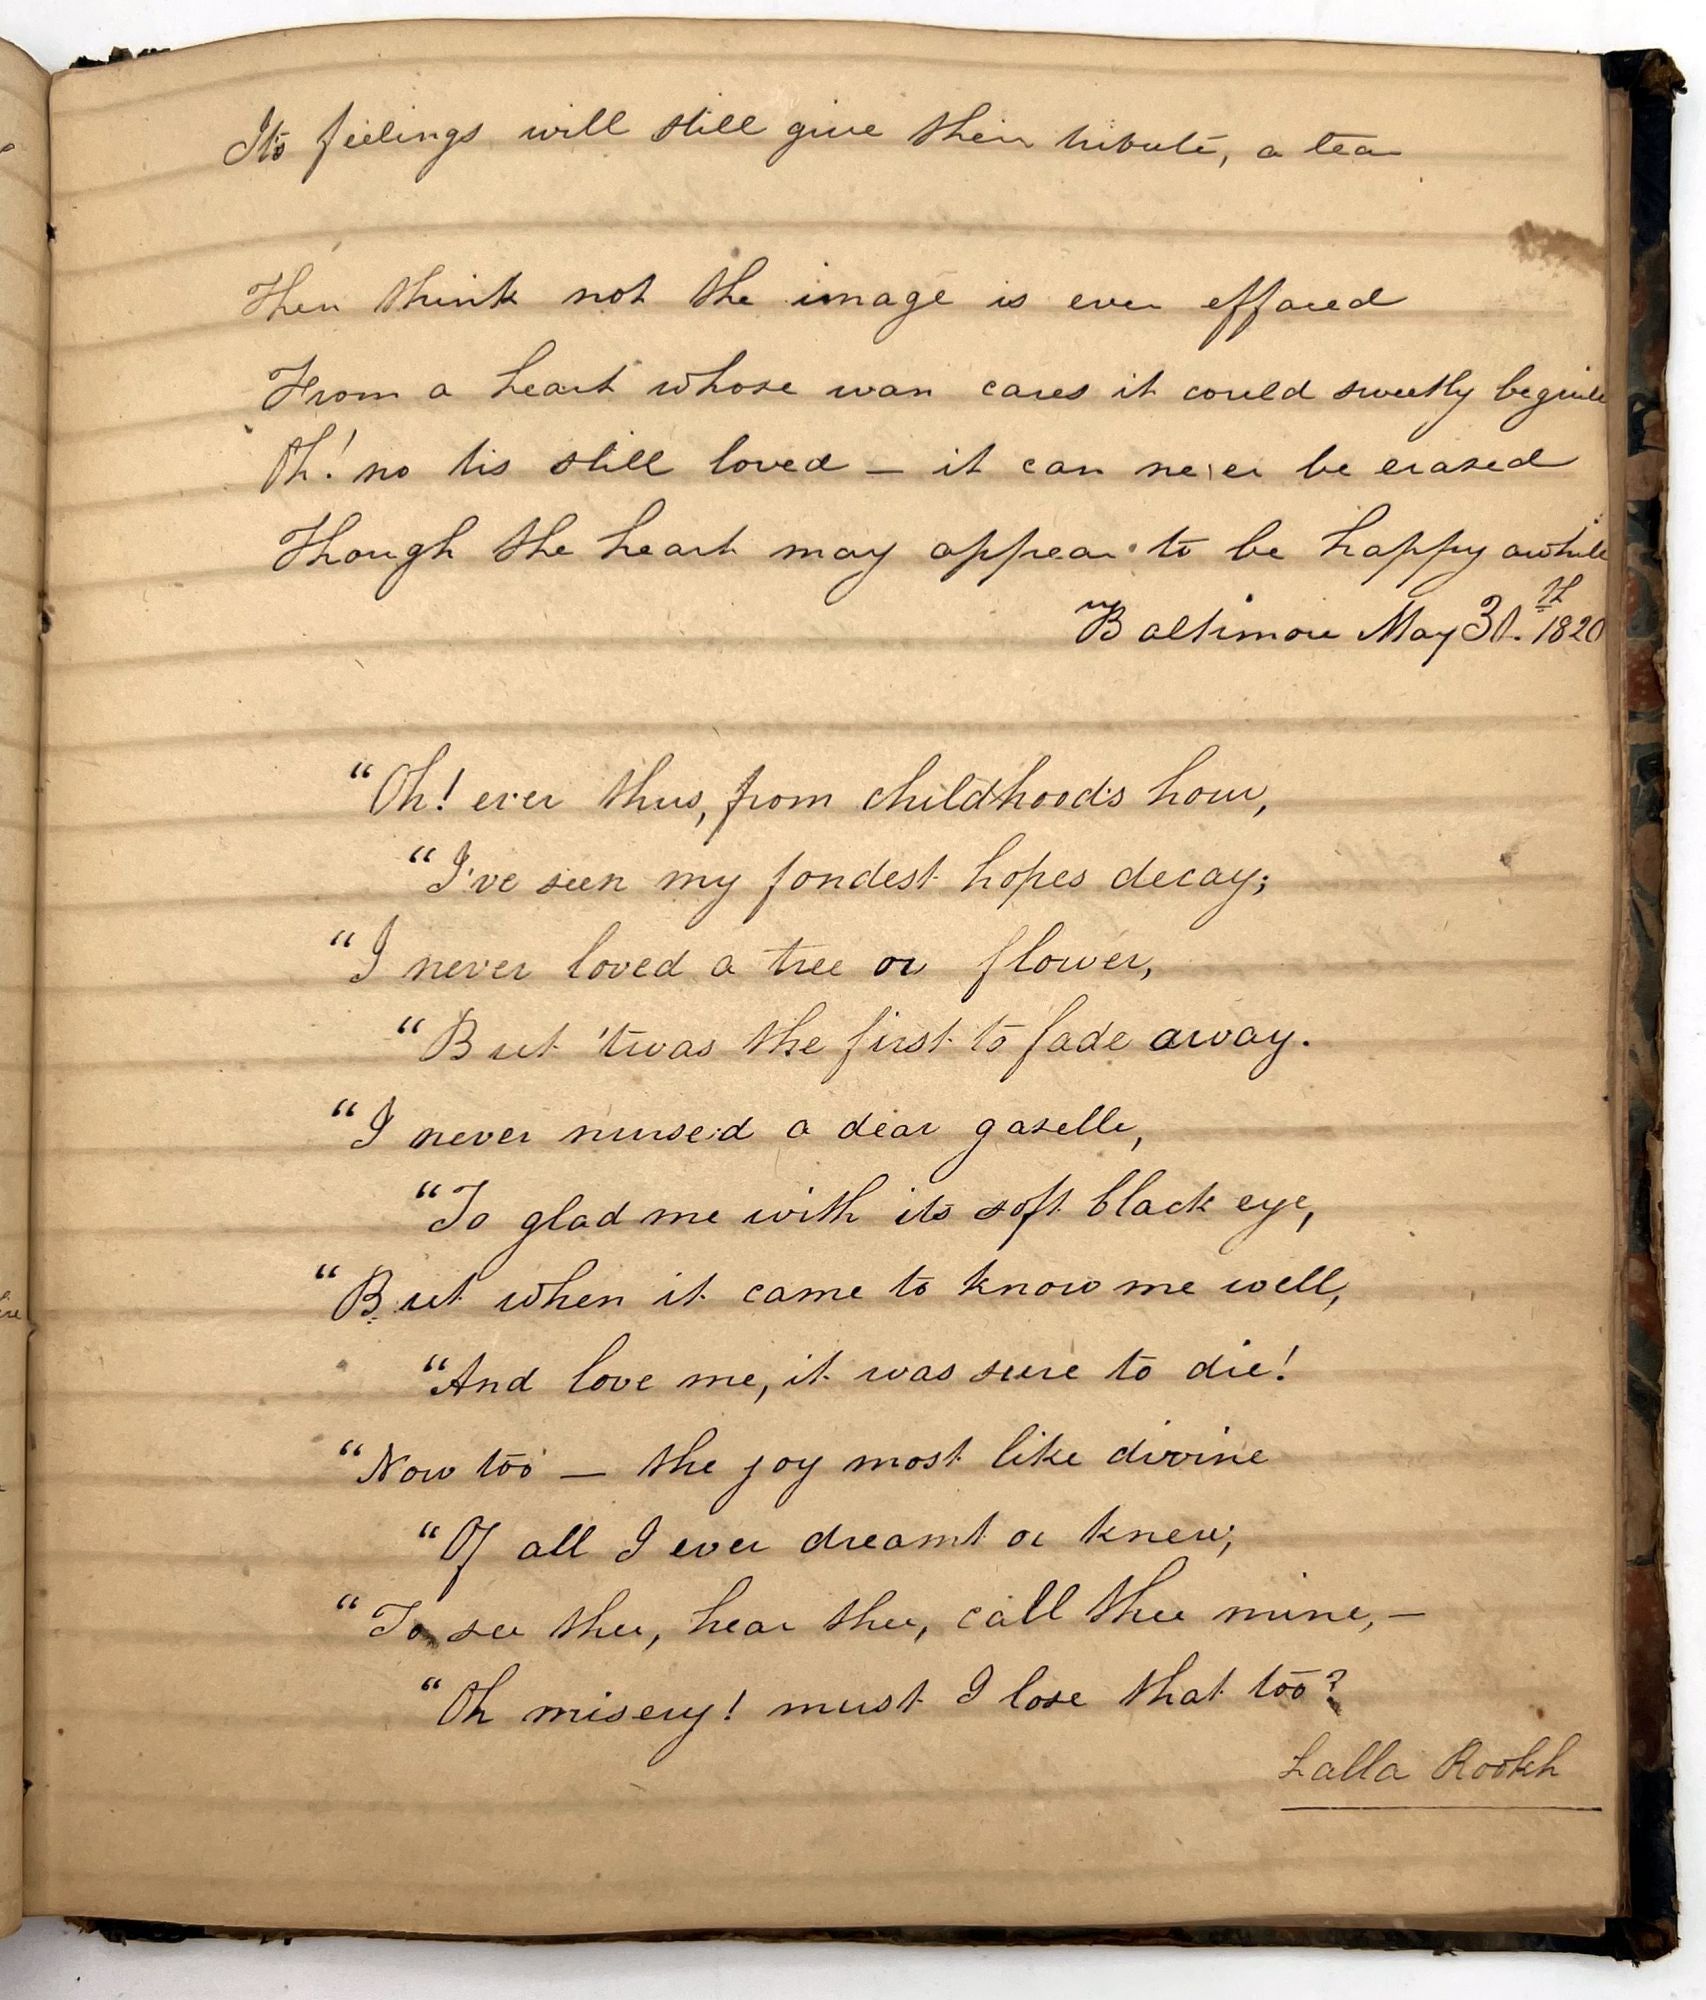 Its feelings will still give their tribute, a tear
Then think not the image is ever effaced
From a heart whose wan cares it could sweetly beguile
Oh! no tis still loved — it can never be erased
Though the heart may appear to be happy awhile
Baltimore May 30.th 1820
"Oh! ever thus, from childhood's hour,
"I've seen my fondest hopes decay;
"I never loved a tree or flower,
"But 'twas the first to fade away.
"I never nursed a dear gazelle,
"To glad me with its soft black eye,
"But when it came to know me well,
"And love me, it was sure to die!
"Now too — the joy most like divine
"Of all I ever dreamt or knew,
"To see thee, hear thee, call thee mine, —
"Oh misery! must I lose that too?
Lalla Rookh